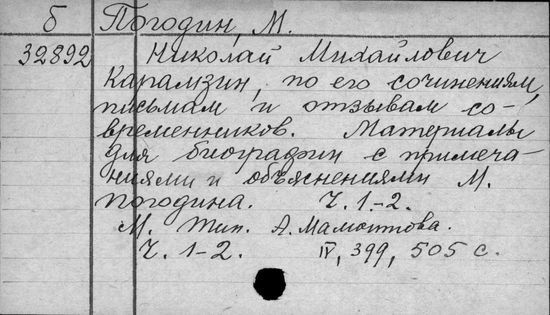 б Погодин, М.
32892 Николай Михайлович
Карамзин, по его сочинениям,
письмам и отзывам со-
временников. Материалы
для биографии с примеча-
ниями и объяснениями М.
Погодина. Ч. 1-2.
М. Тип. А. Мамонтова.
Ч. 1-2. IV, 399, 505 с.